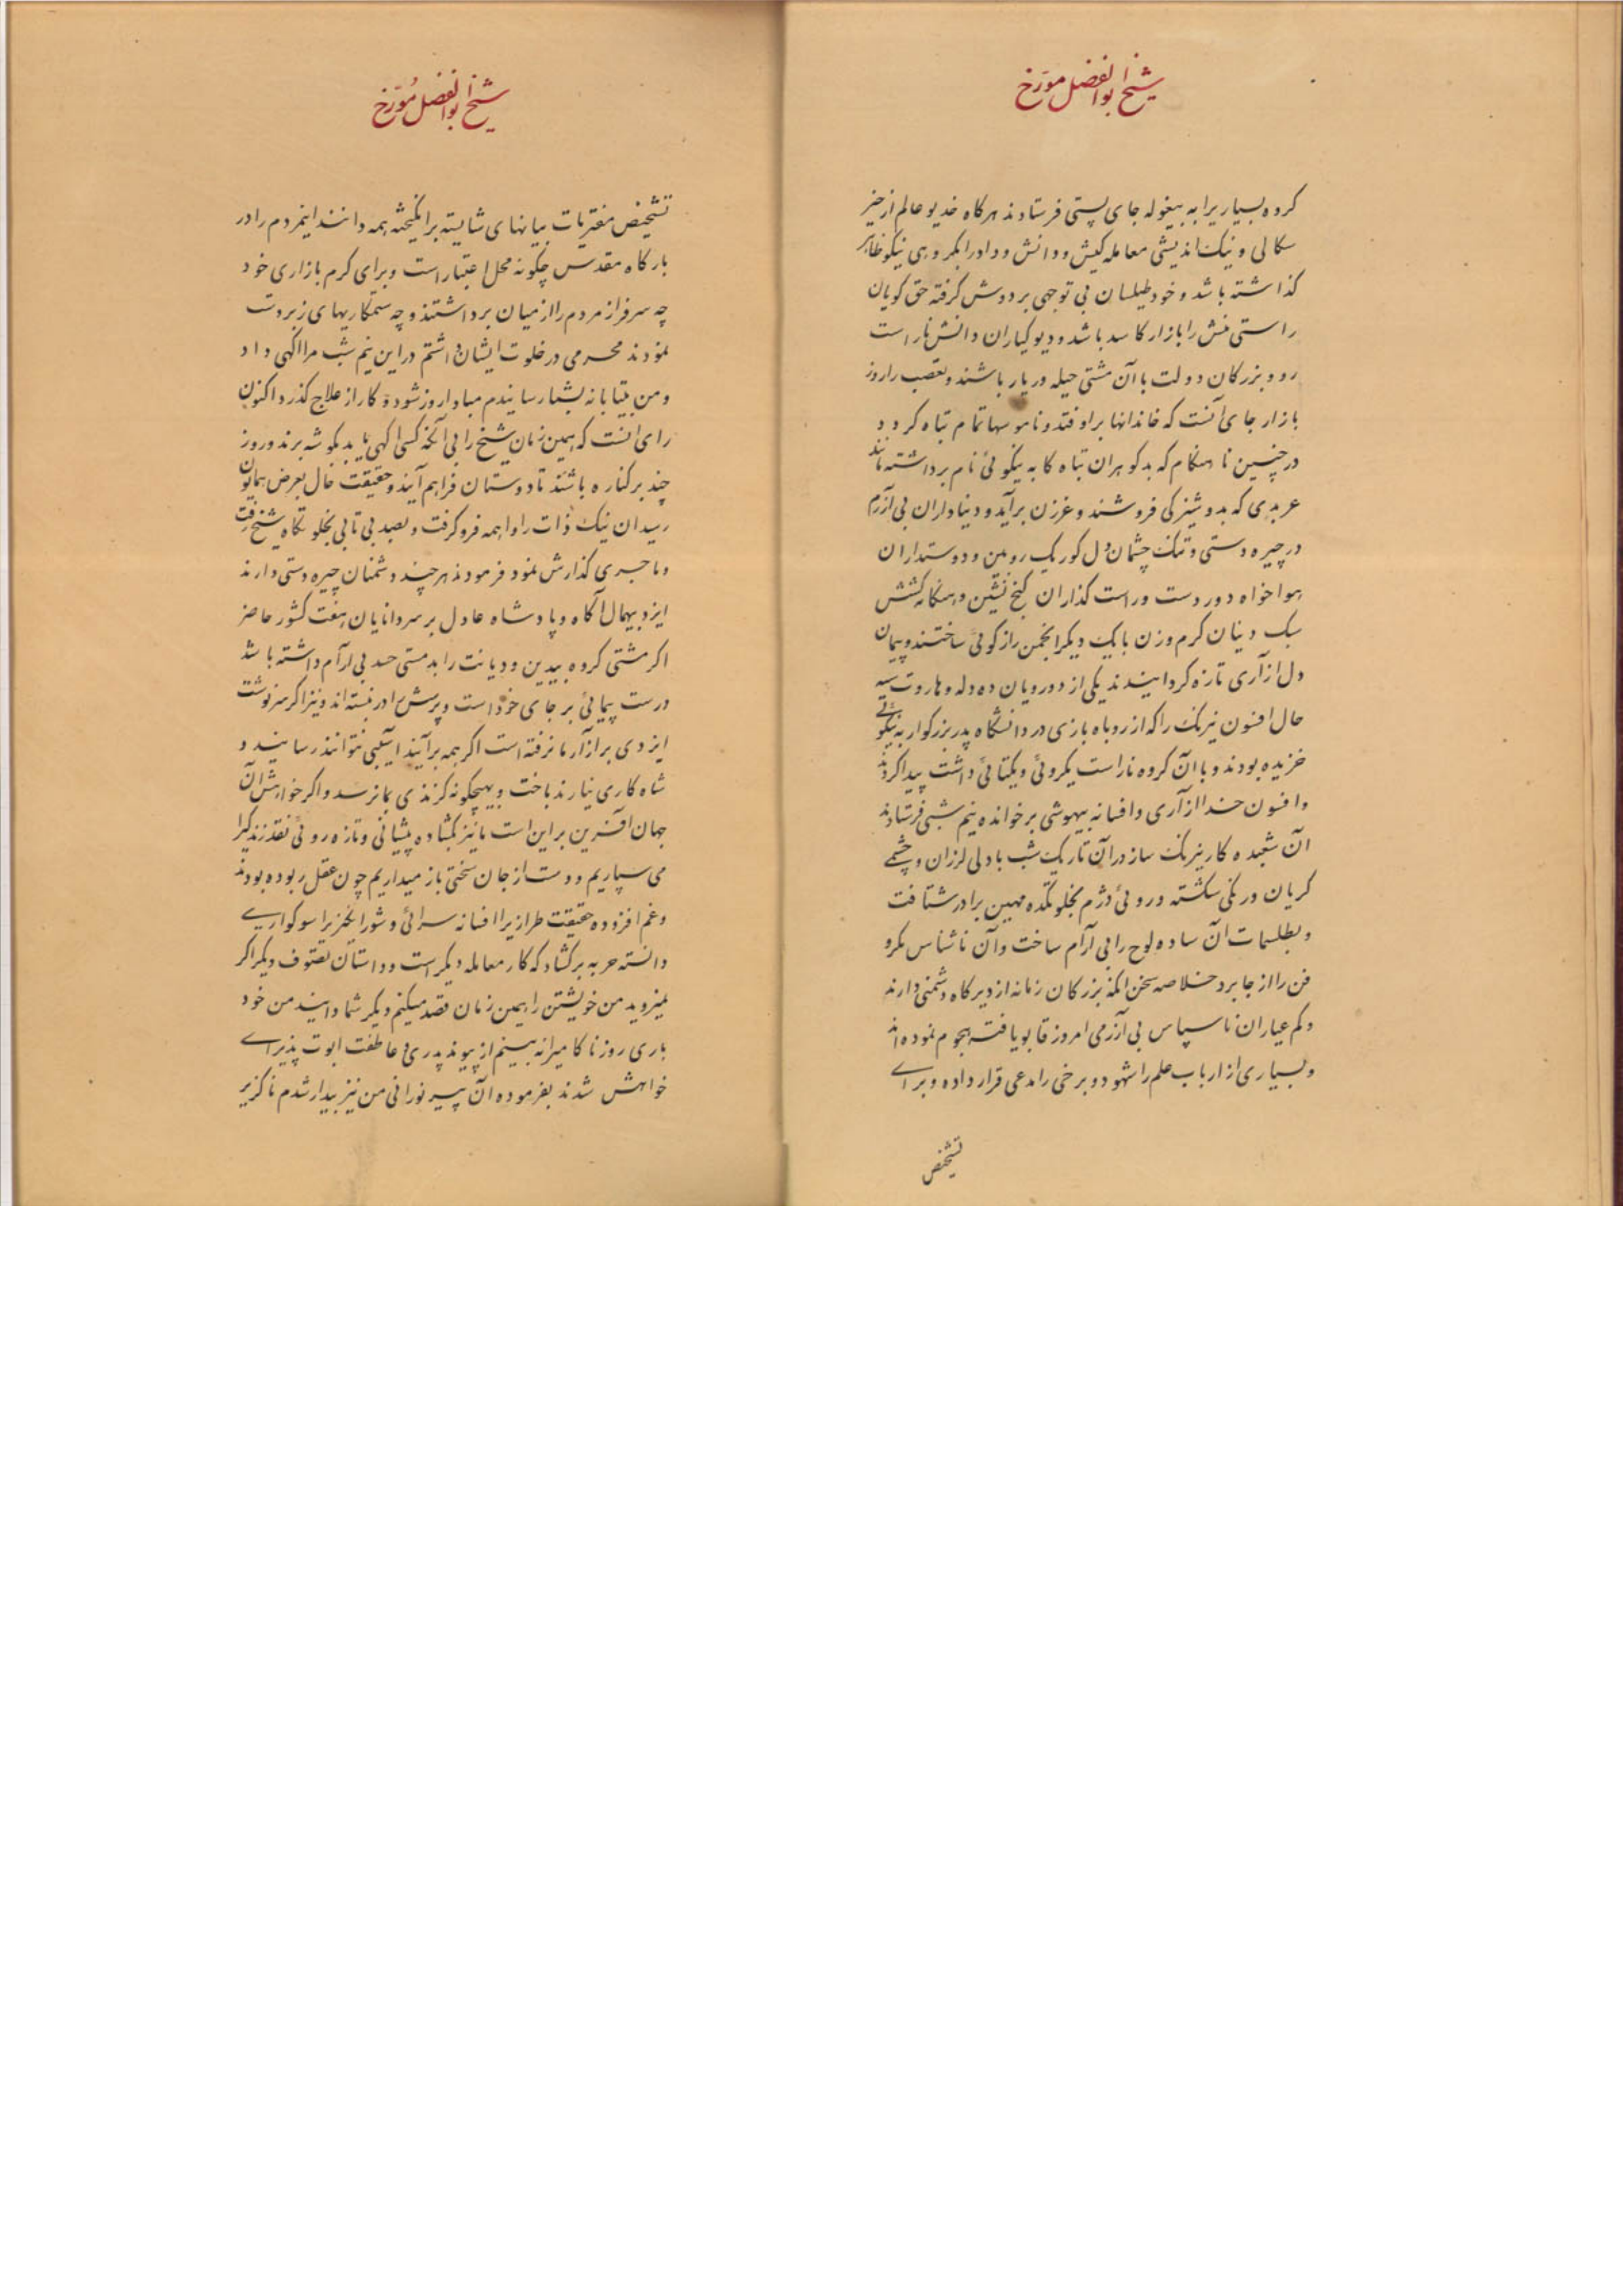 شیخ ابوالفضل مورّخ
کروه بسیاریرا به بیغوله جای پستی فرستادند هرکاه خدیو عالم از خیر
سکالی و نیک اندیشی معامله کیش و دانش و داد را بکروهی نیکو ظاهر
کذاشته باشد و خود طیلسان بی توجهی بر دوش کرفته حق کویان
راستی منش را بازار کاسد باشد و دیو کیاران دانش ناراست
رو و بزرکان دولت با آن مشتی حیله ور یار باشند و تعصب را روز
بازار جای آنست که خاندانها بر اوفتد و ناموسها تمام تباه کردد
در چنین ناهنکام که بدکوهران تباه کا به نیکوئی نام برداشته‌اند
عربدی که بدوشیزکی فروشند و غرزن برآید و دنیاداران بی آزرم
در چیره دستی و تنک چشمان دل کور یک رو بین و دوستداران
هواخواه دور دست و راست کذاران کنج نشین و هنکامه کشش
سبک دینان کرم وزن با یک دیکر انجمن راز کوئی ساختند و پیمان
دل ازآری تازه کردانیدند یکی از دورویان ده دله و هاروت سیه
حال افسون نیرنک را که از روباه بازی در دانشکاه پدر بزرکوار به نیکوئی
خزیده بودند و با آن کروه ناراست یکروئی و یکتائی داشت پیدا کردند
و افسون خدا ازآری و افسانه بیهوشی برخوانده نیم شبی فرستادند
آن شعبده کار نیرنک ساز در آن تاریک شب با دلی لرزان و چشمی
کریان و رنکی شکسته و روئی دژم بخلوتکده مهین برادر شتافت
و بطلسمات آن ساده لوح را بی آرام ساخت و آن ناشناس مکرو
فن را از جا برد خلاصه سخن انکه بزرکان زمانه از دیرکاه دشمنی دارند
و کم عیاران ناسپاس بی آزرمی امروز قابو یافته هجوم نموده‌اند
و بسیاری از ارباب علم را شهود و برخی را مدعی قرار داده و برای
تشخیص
شیخ ابوالفضل مُورّخ
تشخیص مفتریات بیانهای شایسته برانکیخته همه دانند اینمردم را در
بارکاه مقدس چکونه محل اعتبار است و برای کرم بازاری خود
چه سرفراز مردم را از میان برداشتند و چه ستمکاریهای زبردست
نمودند محرمی در خلوت ایشان داشتم در این نیم شب مرا اکهی داد
و من بیتابانه بشما رسانیدم مبادا روز شود و کار از علاج کذرد اکنون
رای انست که همین زمان شیخ را بی آنکه کسی اکهی یابد بکوشه برند و روز
چند بر کناره باشند تا دوستان فراهم آیند و حقیقت حال بعرض همایون
رسد ان نیک ذات را واهمه فرو کرفت و بصد بی تابی بخلوتکاه شیخ رفت
و ماجری کذارش نمود فرمودند هر چند دشمنان چیره دستی دارند
ایزد بیهمال آکاه و پادشاه عادل بر سر دانایان هفت کشور حاضر
اکر مشتی کروه بیدین و دیانت را بدمستی حسد بی ارآم داشته باشد
درست پیمائی بر جای خود است و پرسش را در نبسته اند و نیز اکر سرنوشت
ایزدی بر ازآر ما نرفته است اکر همه برآیند اسیبی نتوانند رسانید و
شاه کاری نیارند باخت و بهیچکونه کزندی بما نرسد و اکر خواهش آن
جهان افرین بر این است ما نیز بکشاده پیشانی و تازه روئی نقد زندکی را
می سپاریم و دست از جان سختی باز میداریم چون عقل ربوده بودند
و غم افزوده حقیقت طرازیرا افسانه سرائی و شورانکیزیرا سوکواری
دانسته حربه برکشاد که کار معامله دیکر است و داستان تصوف دیکر اکر
نمیروید من خویشتن را همین زمان قصد میکنم دیکر شما دانید من خود
باری روز ناکامیرا نه بینم از پیوند پدری و عاطفت ابوت پذیرای
خواهش شدند بفرموده آن پیر نورانی من نیز بیدار شدم ناکزیر